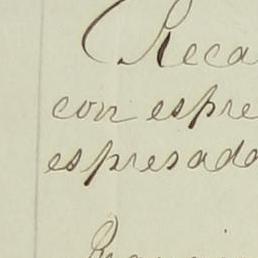 Reca
con espre
espresado